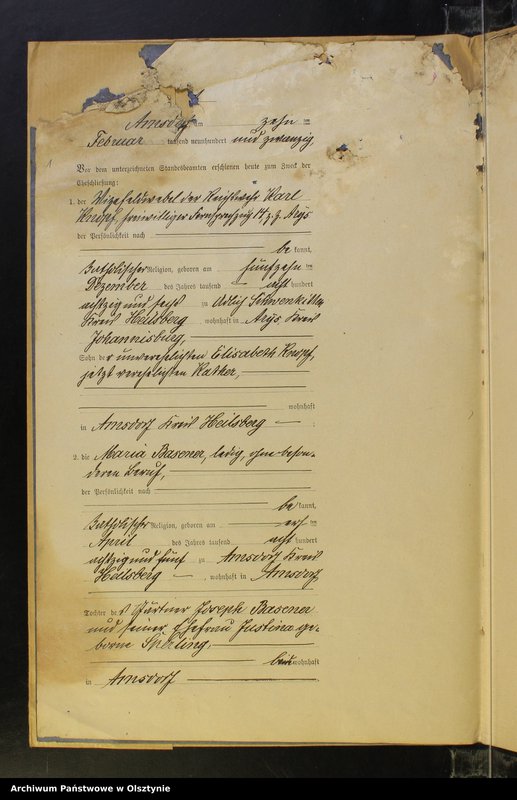 1
Arnsdorf am zehn ten
Februar tausend neunhundert und zwanzig,
Vor dem unterzeichneten Standesbeamten erschienen heute zum Zweck der
Eheschließung:
1. der Vizefeldwebel der Reichswehr Karl
Knopf, freiwilliger z. Z. Arys
der Persönlichkeit nach
be kannt,
katholischer Religion, geboren am fünfzehn ten
Dezember des Jahres tausend acht hundert
achtzig und sechs zu Adlig
Kreis Heilsberg wohnhaft in Arys, Kreis
Johannisburg,
Sohn der unverehelichten Elisabeth Knopf,
jetzt verehelichten
wohnhaft
in Arnsdorf Kreis Heilsberg
2. die Maria Basener, ledig, ohne beson-
deren Beruf,
der Persönlichkeit nach
be kannt,
katholischer Religion, geboren am ten
April des Jahres tausend acht hundert
achtzig und fünf zu Arnsdorf Kreis
Heilsberg, wohnhaft in Arnsdorf,
Tochter des Gärtner Joseph Basener
und seiner Ehefrau Justina ge-
borene Sperling,
beide wohnhaft
in Arnsdorf
Archiwum Państwowe w Olsztynie